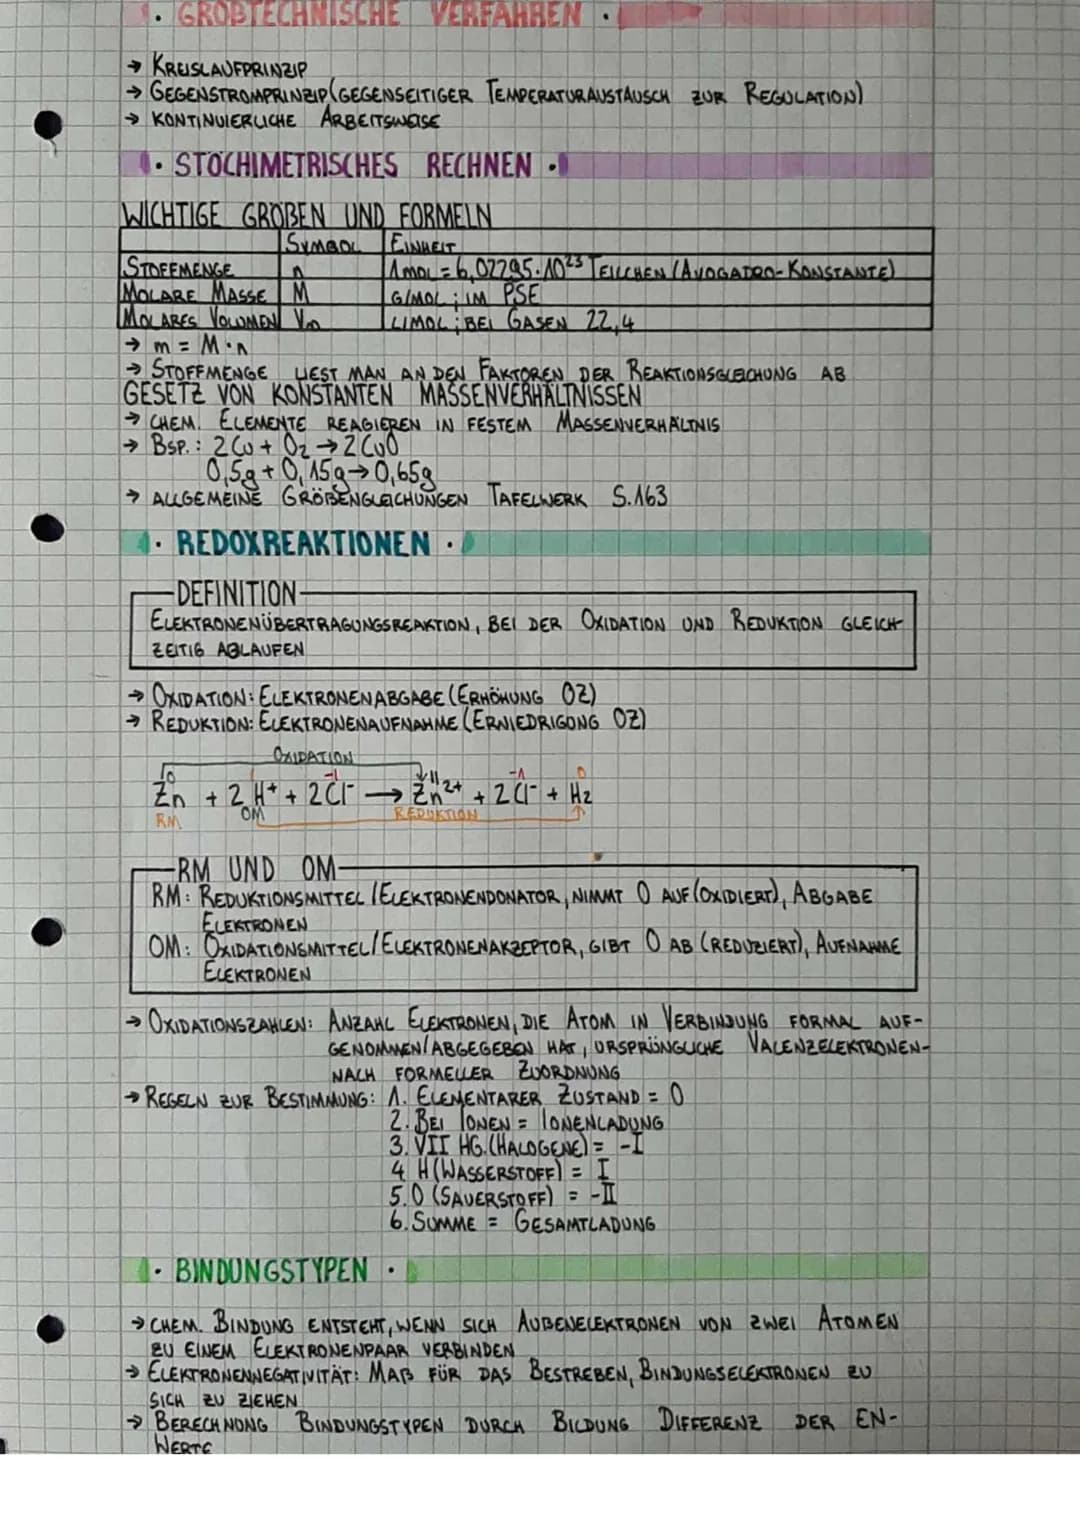 · GROßTECHNISCHE VERFAHREN ·
→ KREISLAUFPRINZIP
→ GEGENSTROMPRINZIP (GEGENSEITIGER TEMPERATURAUSTAUSCH ZUR REGULATION)
→ KONTINUIERLICHE ARBEITSWEISE
· STÖCHIMETRISCHES RECHNEN ·
WICHTIGE GRÖßEN UND FORMELN
SYMBOL EINHEIT
STOFFMENGE n 1 MOL = 6,02295·10²³ TEILCHEN (AVOGADRO-KONSTANTE)
MOLARE MASSE M G/MOL ; IM PSE
MOLARES VOLUMEN Vm L/MOL ; BEI GASEN 22,4
→ m = M·n
→ STOFFMENGE LIEST MAN AN DEN FAKTOREN DER REAKTIONSGLEICHUNG AB
GESETZ VON KONSTANTEN MASSENVERHÄLTNISSEN
→ CHEM. ELEMENTE REAGIEREN IN FESTEM MASSENVERHÄLTNIS
→ BSP.: 2 Cu + O₂ → 2 CuO
0,5g + 0,15g → 0,65g
→ ALLGEMEINE GRÖßENGLEICHUNGEN TAFELWERK S.163
· REDOXREAKTIONEN ·
DEFINITION
ELEKTRONENÜBERTRAGUNGSREAKTION, BEI DER OXIDATION UND REDUKTION GLEICH-
ZEITIG ABLAUFEN
→ OXIDATION: ELEKTRONENABGABE (ERHÖHUNG OZ)
→ REDUKTION: ELEKTRONENAUFNAHME (ERNIEDRIGUNG OZ)
OXIDATION
0 I -I II -I 0
Zn + 2 H⁺ + 2 Cl⁻ → Zn²⁺ + 2 Cl⁻ + H₂
RM OM REDUKTION
RM UND OM
RM: REDUKTIONSMITTEL / ELEKTRONENDONATOR, NIMMT O AUF (OXIDIERT), ABGABE
ELEKTRONEN
OM: OXIDATIONSMITTEL / ELEKTRONENAKZEPTOR, GIBT O AB (REDUZIERT), AUFNAHME
ELEKTRONEN
→ OXIDATIONSZAHLEN: ANZAHL ELEKTRONEN, DIE ATOM IN VERBINDUNG FORMAL AUF-
GENOMMEN/ABGEGEBEN HAT, URSPRÜNGLICHE VALENZELEKTRONEN-
NACH FORMELLER ZUORDNUNG
→ REGELN ZUR BESTIMMUNG: 1. ELEMENTARER ZUSTAND = 0
2. BEI IONEN = IONENLADUNG
3. VII HG.(HALOGENE) = -I
4. H (WASSERSTOFF) = I
5. O (SAUERSTOFF) = -II
6. SUMME = GESAMTLADUNG
· BINDUNGSTYPEN ·
→ CHEM. BINDUNG ENTSTEHT, WENN SICH AUßENELEKTRONEN VON ZWEI ATOMEN
ZU EINEM ELEKTRONENPAAR VERBINDEN
→ ELEKTRONENNEGATIVITÄT: MAß FÜR DAS BESTREBEN, BINDUNGSELEKTRONEN ZU
SICH ZU ZIEHEN
→ BERECHNUNG BINDUNGSTYPEN DURCH BILDUNG DIFFERENZ DER EN-
WERTE